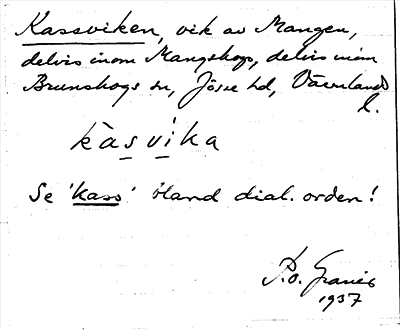 Kassviken, vik av Mangen,
delvis inom Mangskogs, delvis inom
Brunskogs sn, Jösse hd, Värmlands
l.
kàsvika
Se 'kass' bland dial. orden!
P.O.
1937